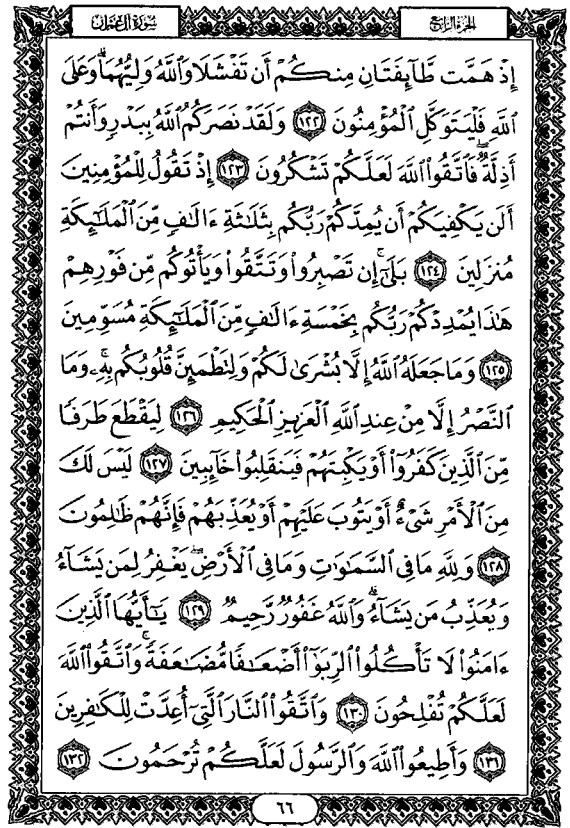 سورة آل عمران
الجزء الرابع
إِذْ هَمَّت طَّآئِفَتَانِ مِنكُمْ أَن تَفْشَلَا وَٱللَّهُ وَلِيُّهُمَا ۗ وَعَلَى
ٱللَّهِ فَلْيَتَوَكَّلِ ٱلْمُؤْمِنُونَ ١٢٢ وَلَقَدْ نَصَرَكُمُ ٱللَّهُ بِبَدْرٍ وَأَنتُمْ
أَذِلَّةٌ ۖ فَٱتَّقُوا۟ ٱللَّهَ لَعَلَّكُمْ تَشْكُرُونَ ١٢٣ إِذْ تَقُولُ لِلْمُؤْمِنِينَ
أَلَن يَكْفِيَكُمْ أَن يُمِدَّكُمْ رَبُّكُم بِثَلَٰثَةِ ءَالَٰفٍ مِّنَ ٱلْمَلَٰٓئِكَةِ
مُنزَلِينَ ١٢٤ بَلَىٰٓ ۚ إِن تَصْبِرُوا۟ وَتَتَّقُوا۟ وَيَأْتُوكُم مِّن فَوْرِهِمْ
هَٰذَا يُمْدِدْكُمْ رَبُّكُم بِخَمْسَةِ ءَالَٰفٍ مِّنَ ٱلْمَلَٰٓئِكَةِ مُسَوِّمِينَ
١٢٥ وَمَا جَعَلَهُ ٱللَّهُ إِلَّا بُشْرَىٰ لَكُمْ وَلِتَطْمَئِنَّ قُلُوبُكُم بِهِۦ ۗ وَمَا
ٱلنَّصْرُ إِلَّا مِنْ عِندِ ٱللَّهِ ٱلْعَزِيزِ ٱلْحَكِيمِ ١٢٦ لِيَقْطَعَ طَرَفًا
مِّنَ ٱلَّذِينَ كَفَرُوٓا۟ أَوْ يَكْبِتَهُمْ فَيَنقَلِبُوا۟ خَآئِبِينَ ١٢٧ لَيْسَ لَكَ
مِنَ ٱلْأَمْرِ شَىْءٌ أَوْ يَتُوبَ عَلَيْهِمْ أَوْ يُعَذِّبَهُمْ فَإِنَّهُمْ ظَٰلِمُونَ
١٢٨ وَلِلَّهِ مَا فِى ٱلسَّمَٰوَٰتِ وَمَا فِى ٱلْأَرْضِ ۚ يَغْفِرُ لِمَن يَشَآءُ
وَيُعَذِّبُ مَن يَشَآءُ ۚ وَٱللَّهُ غَفُورٌ رَّحِيمٌ ١٢٩ يَٰٓأَيُّهَا ٱلَّذِينَ
ءَامَنُوا۟ لَا تَأْكُلُوا۟ ٱلرِّبَوٰٓا۟ أَضْعَٰفًا مُّضَٰعَفَةً ۖ وَٱتَّقُوا۟ ٱللَّهَ
لَعَلَّكُمْ تُفْلِحُونَ ١٣٠ وَٱتَّقُوا۟ ٱلنَّارَ ٱلَّتِىٓ أُعِدَّتْ لِلْكَٰفِرِينَ
١٣١ وَأَطِيعُوا۟ ٱللَّهَ وَٱلرَّسُولَ لَعَلَّكُمْ تُرْحَمُونَ ١٣٢
٦٦